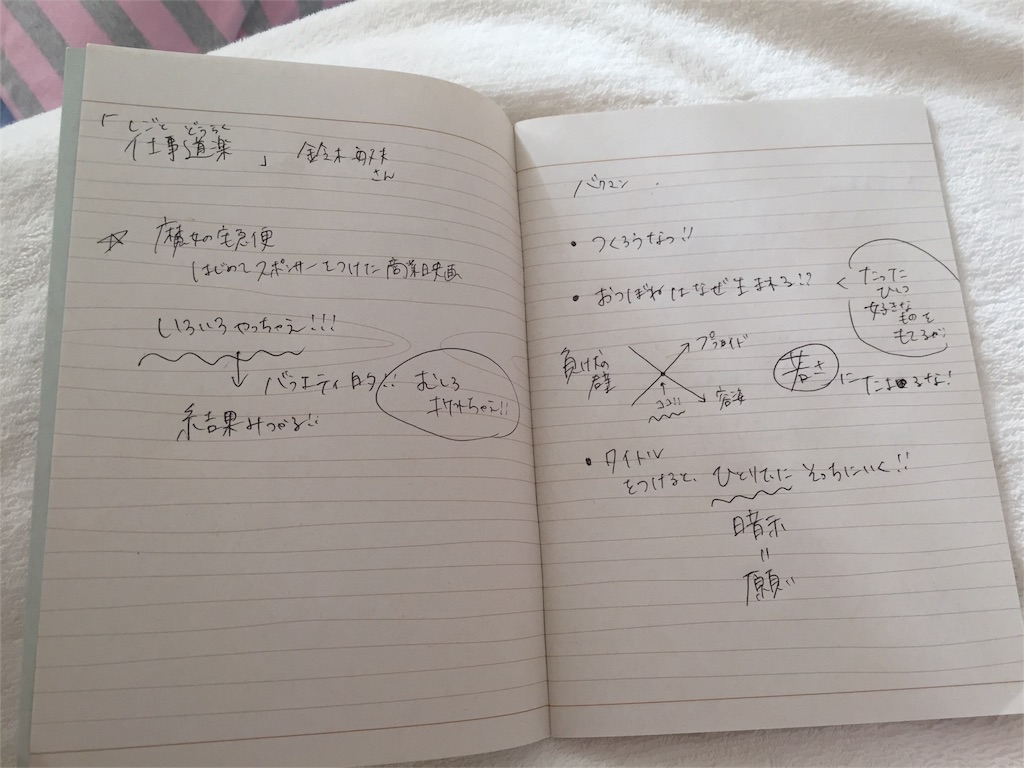 「仕事道楽」 鈴木敏夫さん
しごと どうらく
☆ 魔女の宅急便
はじめてスポンサーをつけた商業映画
いろいろやっちゃえ!!!
↓ バラエティ
結果みつかる!!
バクマン
• つくろうなっ!!
• おつぼねはなぜ生まれる!? < たった
ひとつ
好きな
ものを
もてるか
プライド
ココ!!
若さ にたよるな!
• タイトル
をつけると、ひとりでに そっちにいく!!
暗示
||
願い